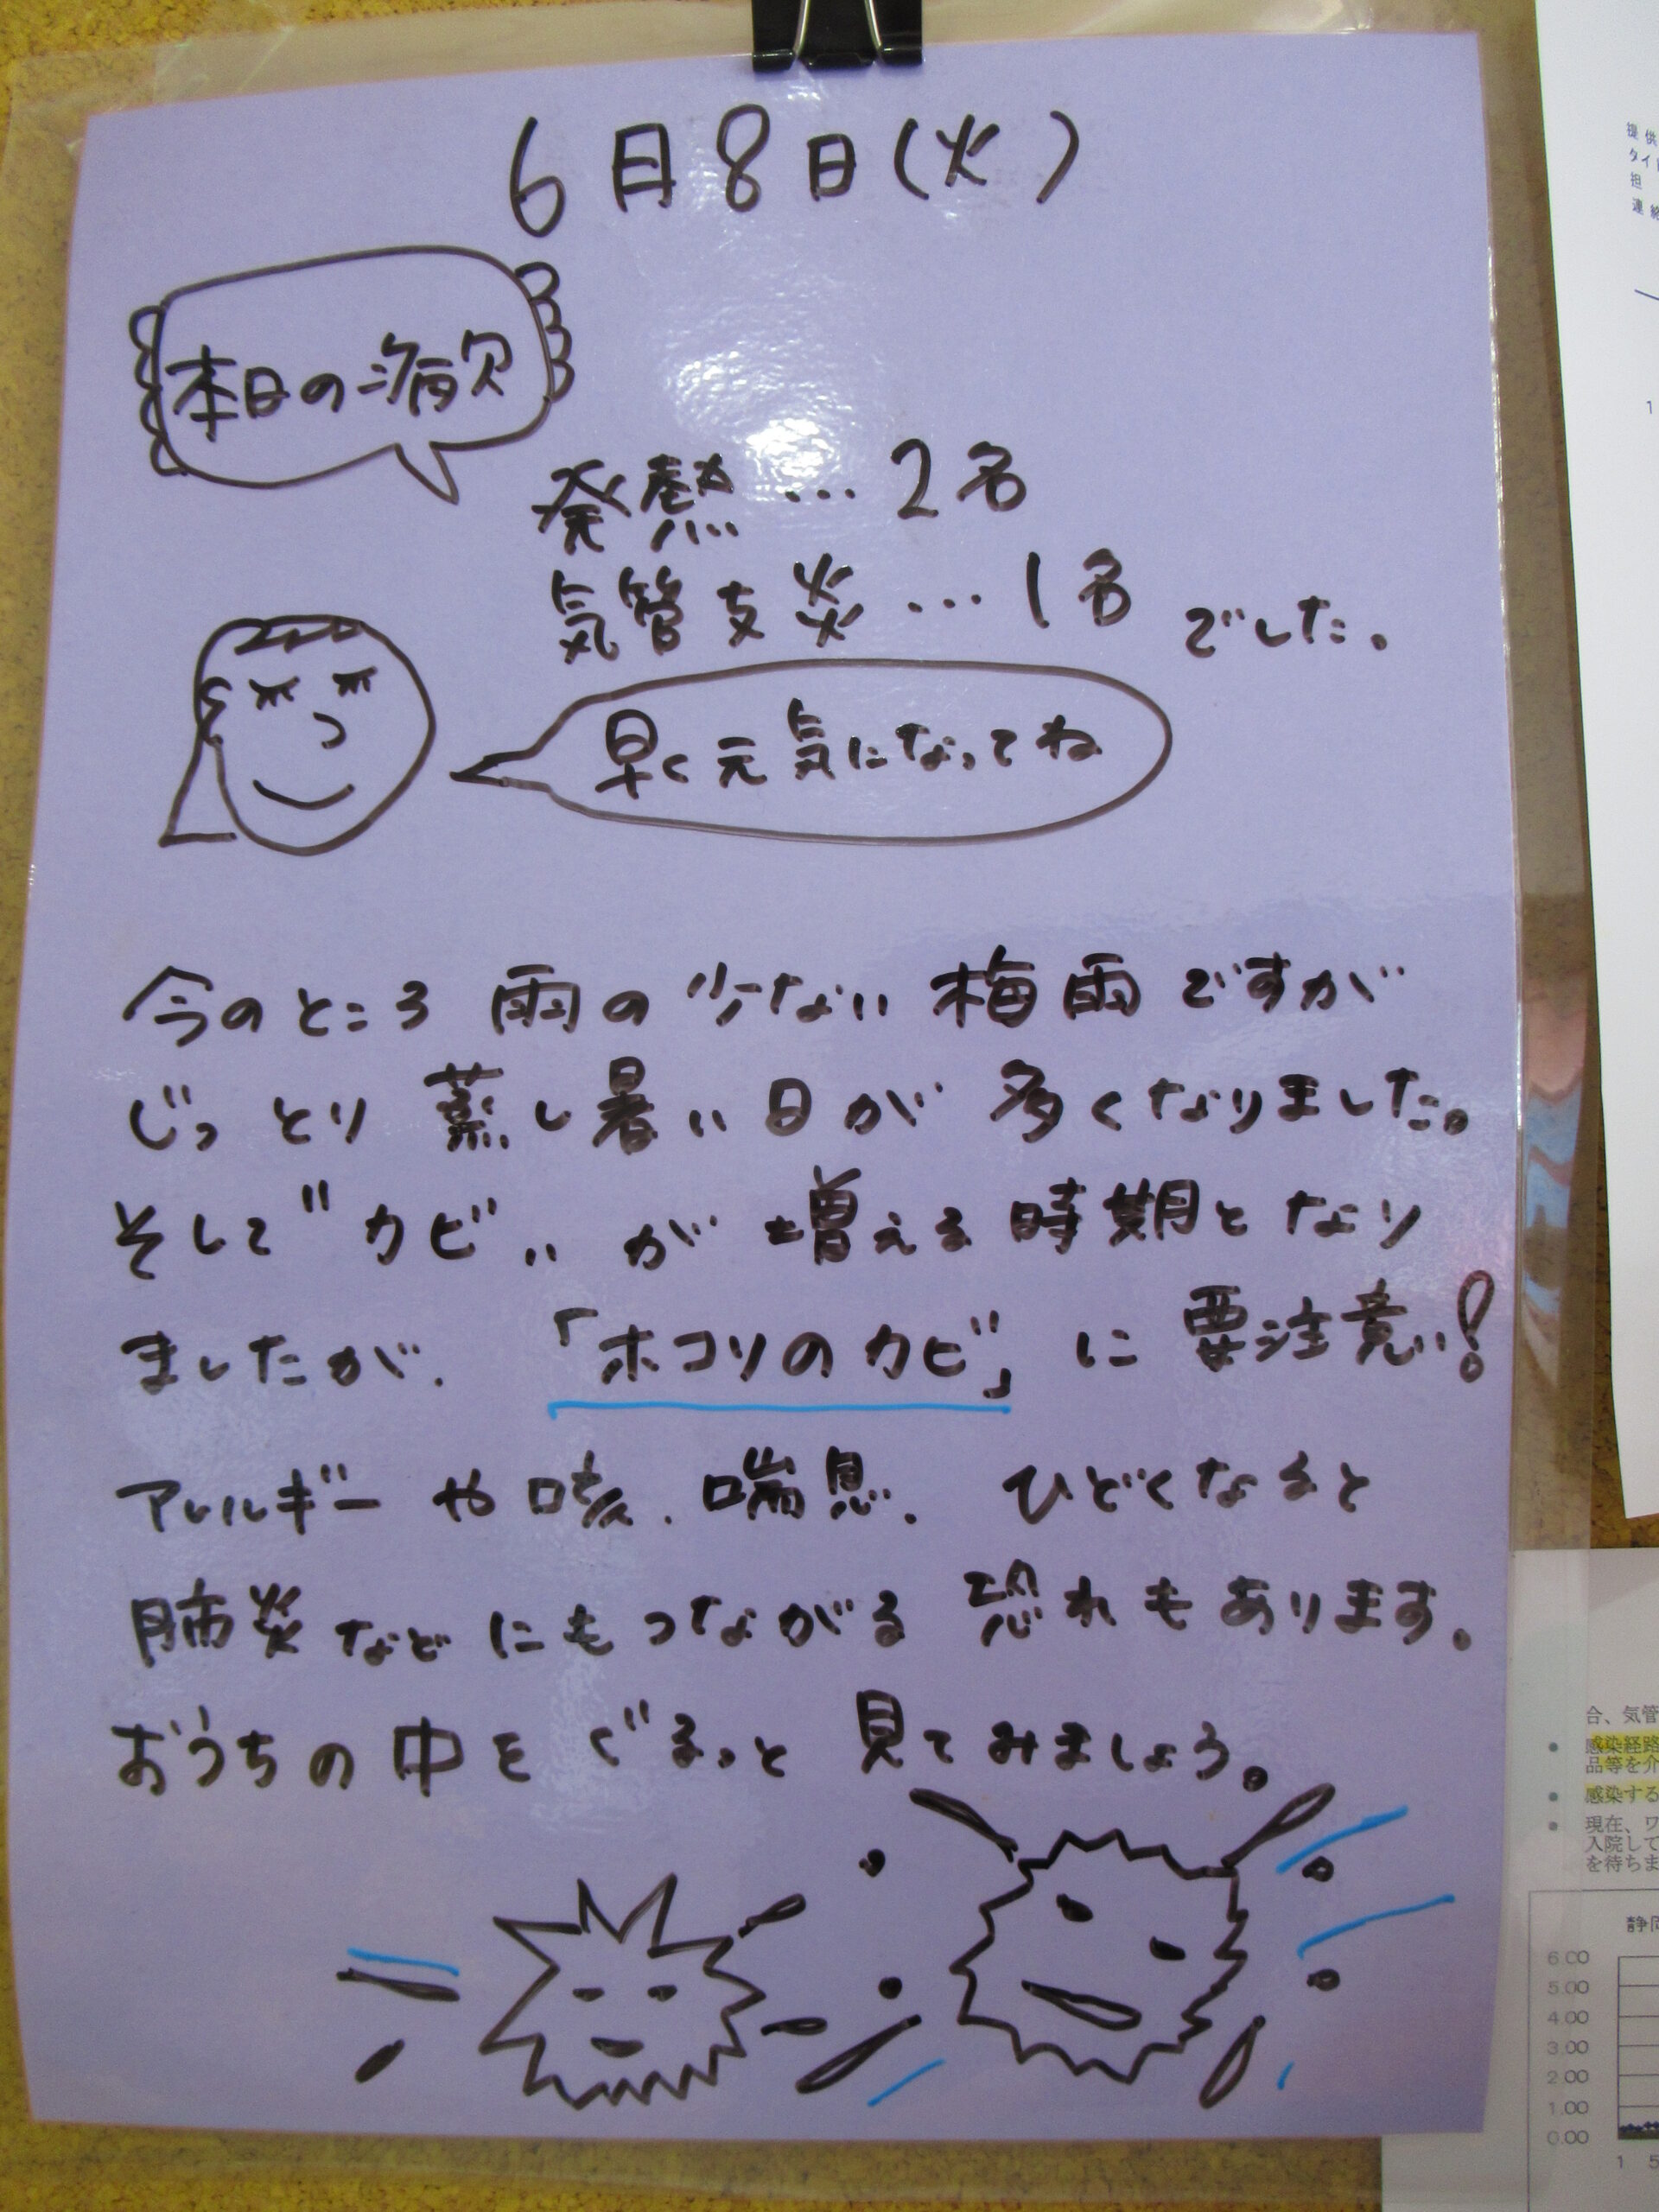 6月8日(火)
本日の病欠
発熱…2名
気管支炎…1名 でした。
早く元気になってね
今のところ 雨の少ない 梅雨ですが
じっとり 蒸し暑い日が 多くなりました。
そして〝カビ〟が 増える時期となり
ましたが、「ホコリのカビ」に 要注意!
アレルギーや咳、喘息、ひどくなると
肺炎などにもつながる 恐れもあります。
おうちの中を ぐるっと 見てみましょう。
提供
タイ
担
連絡
1
合、気管
感染経路
品等を介
感染する
現在、ワ
入院して
を待ちま
静岡
6.00
5.00
4.00
3.00
2.00
1.00
0.00
1 5